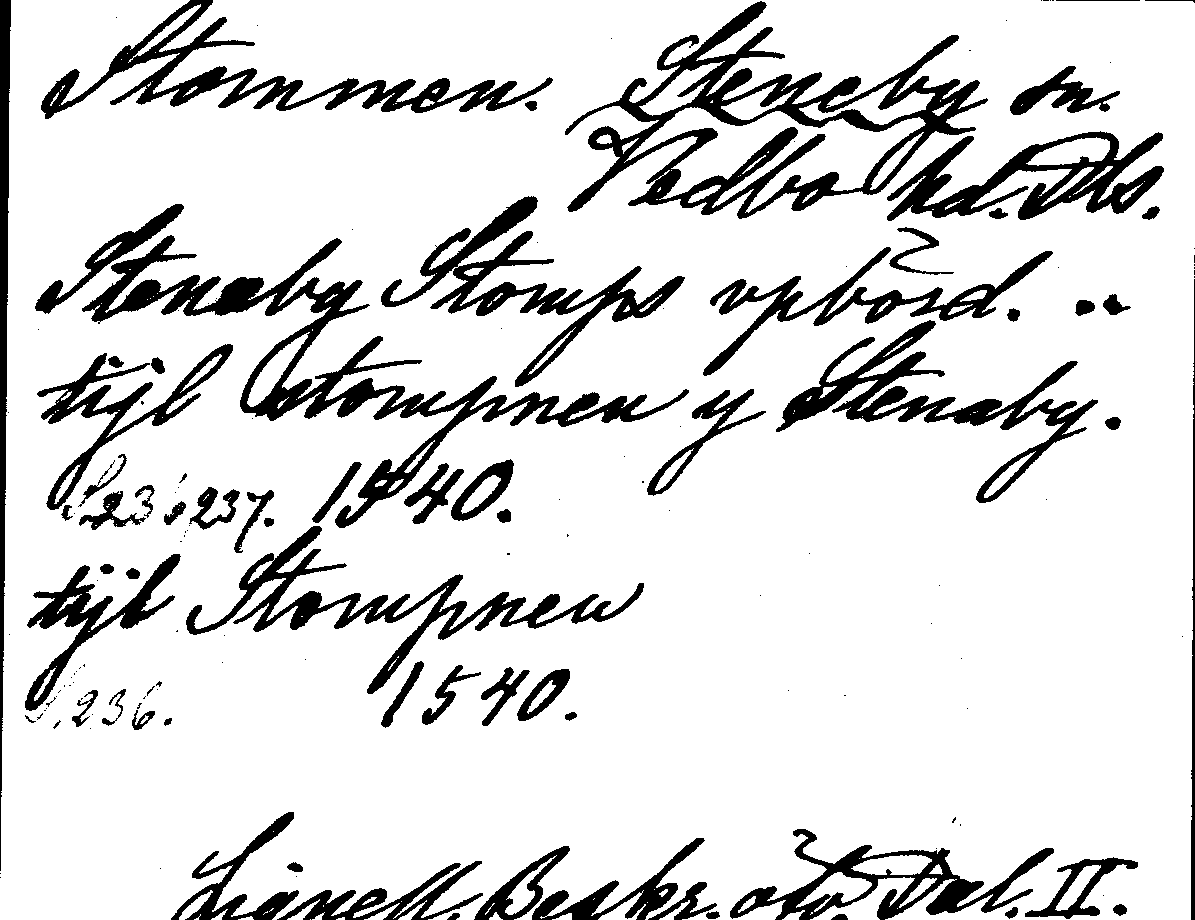 Stommen. Steneby sn.
Vedbo hd. Dls.
Stenæby Stomps vpbörd. ..
tijl stompnen y Stenæby.
S. 236, 237. 1540.
tijl Stompnen
S. 236. 1540.
Lignell, Beskr. öfv. Dal. II.